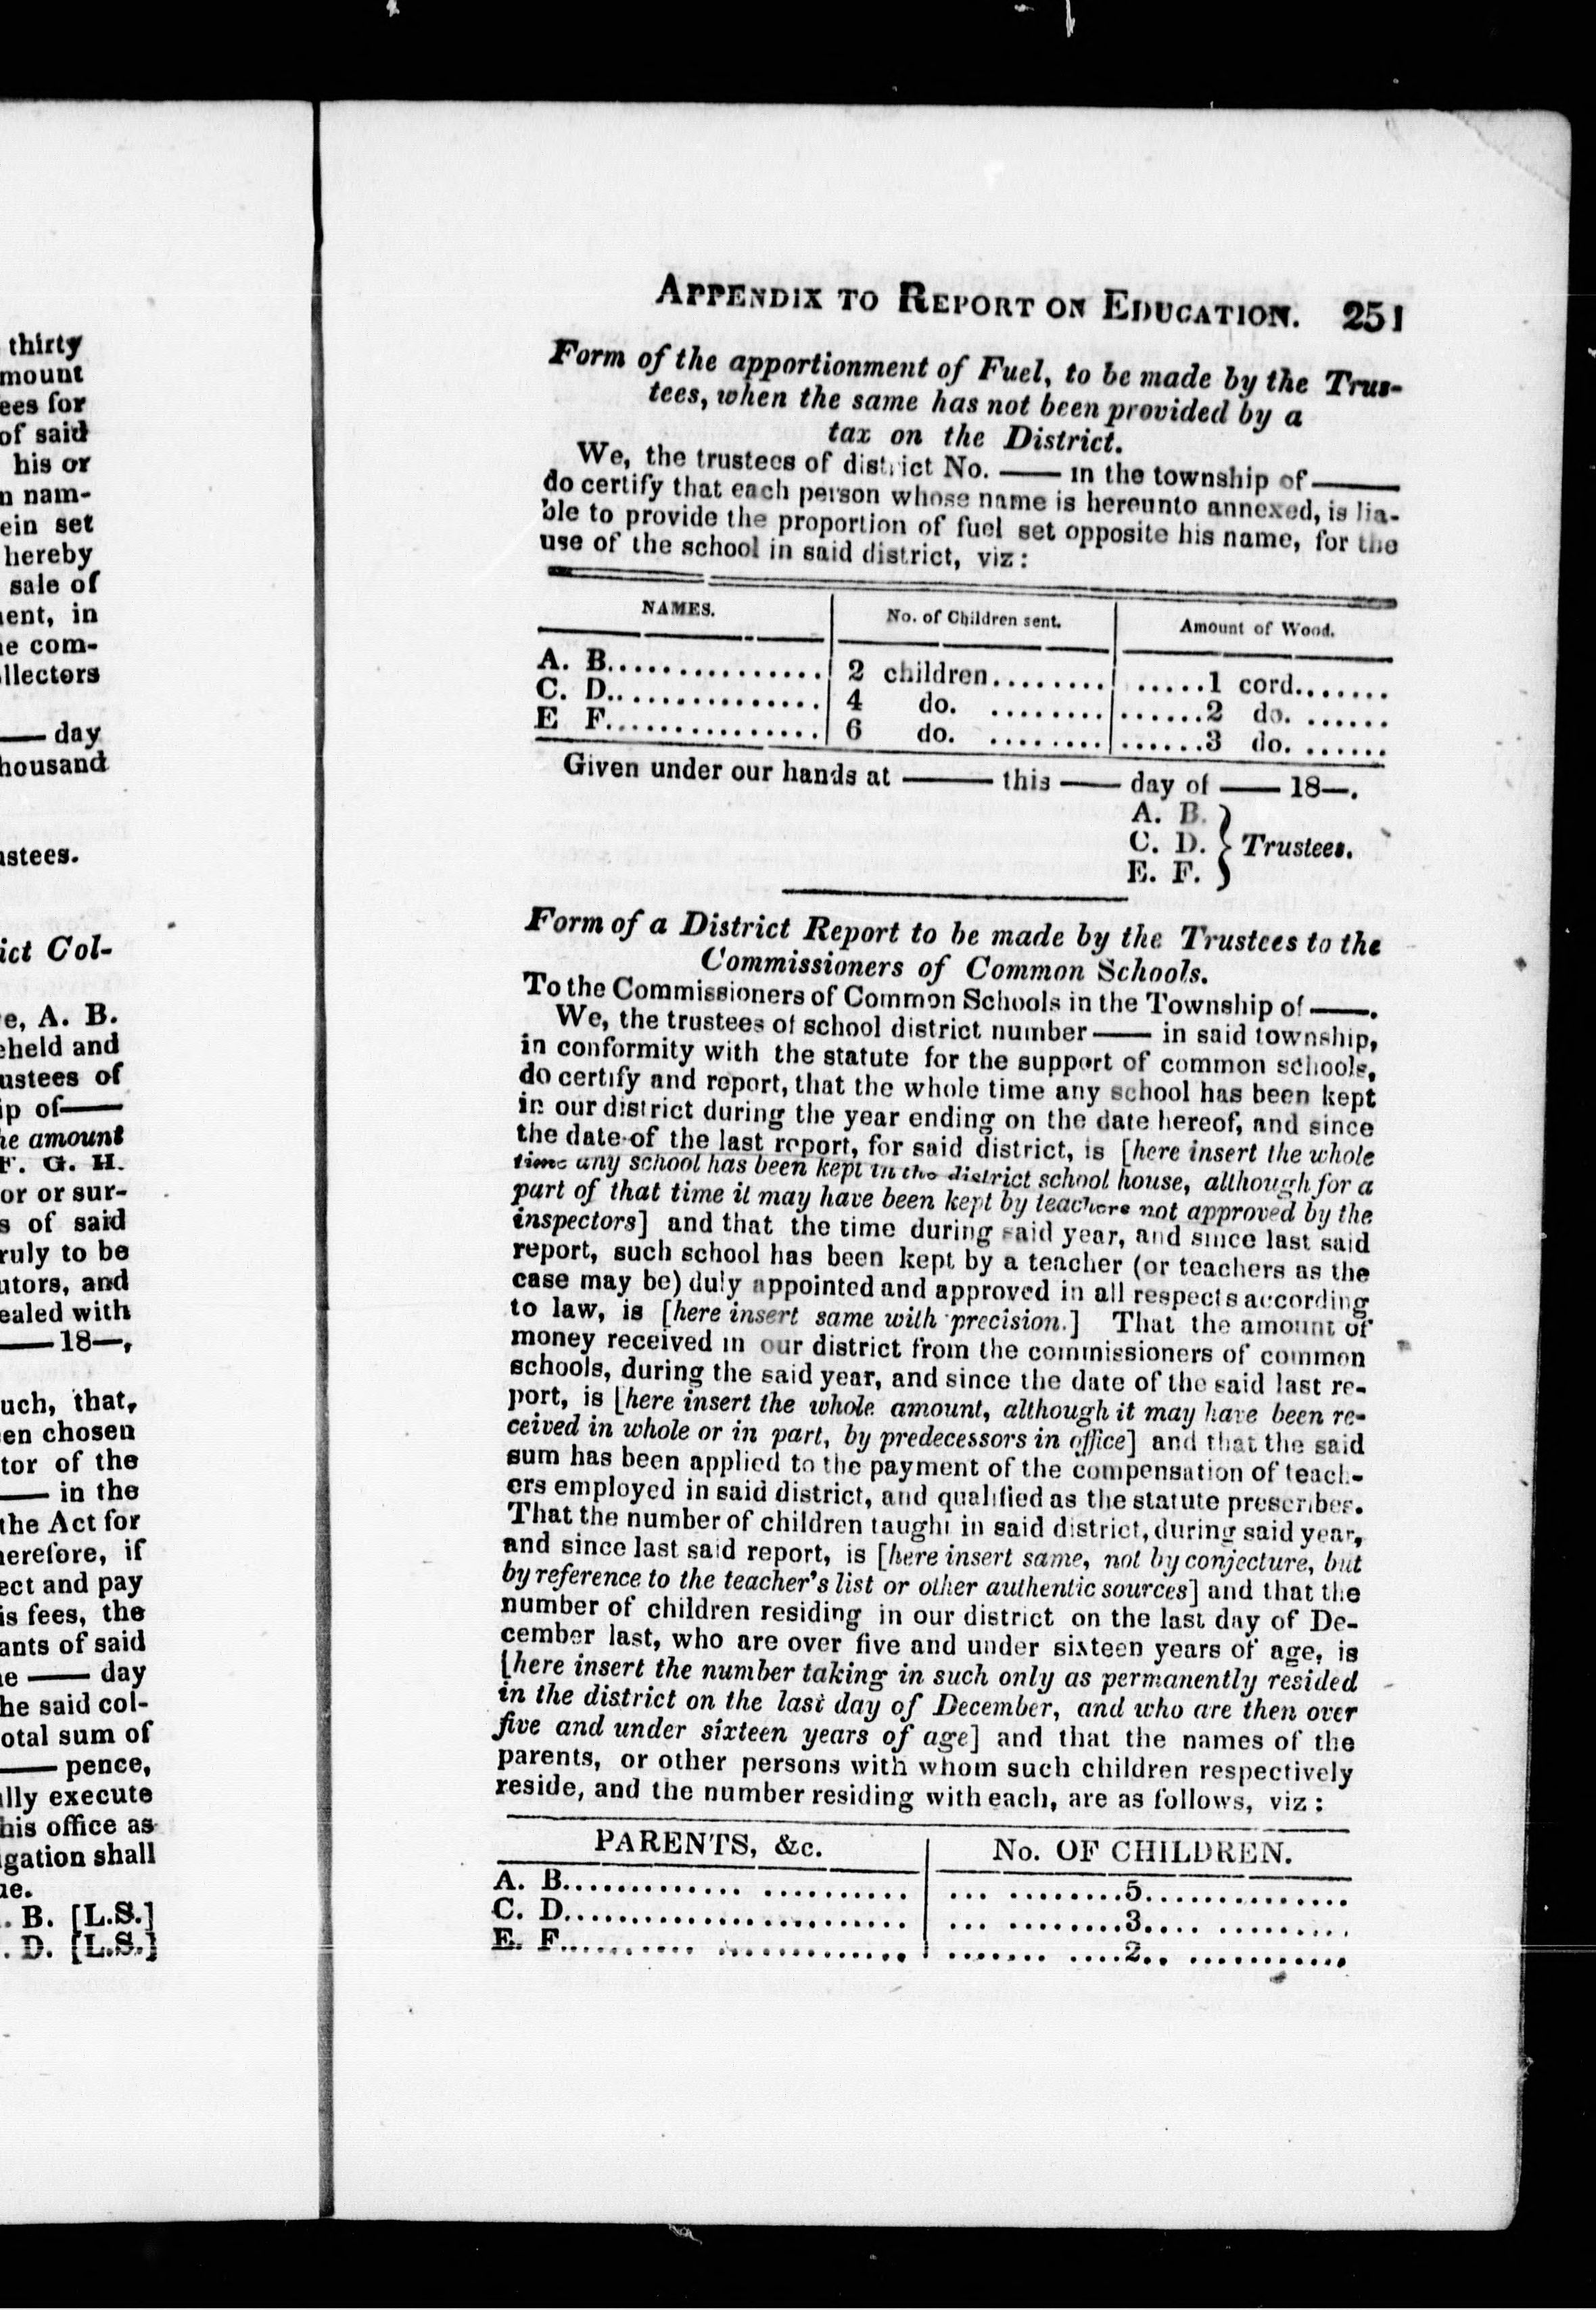 thirty
mount
ees for
of said
his or
n nam-
ein set
hereby
sale of
ent, in
e com-
llectors
—— day
housand
stees.
ict Col-
e, A. B.
held and
ustees of
ip of——
he amount
F. G. H.
or or sur-
s of said
ruly to be
utors, and
ealed with
—— 18—,
uch, that,
en chosen
tor of the
—— in the
the Act for
herefore, if
ect and pay
is fees, the
ants of said
e —— day
he said col-
otal sum of
—— pence,
lly execute
his office as
igation shall
ue.
. B. [L.S.]
. D. [L.S.]
APPENDIX TO REPORT ON EDUCATION. 251
Form of the apportionment of Fuel, to be made by the Trus-
tees, when the same has not been provided by a
tax on the District.
We, the trustees of district No. —— in the township of ——
do certify that each person whose name is hereunto annexed, is lia-
ble to provide the proportion of fuel set opposite his name, for the
use of the school in said district, viz:
NAMES. No. of Children sent. Amount of Wood.
A. B............... 2 children........ ......1 cord.......
C. D............... 4 do. ........ ......2 do. ......
E F............... 6 do. ........ ......3 do. ......
Given under our hands at —— this —— day of —— 18—.
A. B.
C. D. } Trustees.
E. F.
Form of a District Report to be made by the Trustees to the
Commissioners of Common Schools.
To the Commissioners of Common Schools in the Township of ——.
We, the trustees of school district number —— in said township,
in conformity with the statute for the support of common schools,
do certify and report, that the whole time any school has been kept
in our district during the year ending on the date hereof, and since
the date of the last report, for said district, is [here insert the whole
time any school has been kept in the district school house, although for a
part of that time it may have been kept by teachers not approved by the
inspectors] and that the time during said year, and since last said
report, such school has been kept by a teacher (or teachers as the
case may be) duly appointed and approved in all respects according
to law, is [here insert same with precision.] That the amount of
money received in our district from the commissioners of common
schools, during the said year, and since the date of the said last re-
port, is [here insert the whole amount, although it may have been re-
ceived in whole or in part, by predecessors in office] and that the said
sum has been applied to the payment of the compensation of teach-
ers employed in said district, and qualified as the statute prescribes.
That the number of children taught in said district, during said year,
and since last said report, is [here insert same, not by conjecture, but
by reference to the teacher's list or other authentic sources] and that the
number of children residing in our district on the last day of De-
cember last, who are over five and under sixteen years of age, is
[here insert the number taking in such only as permanently resided
in the district on the last day of December, and who are then over
five and under sixteen years of age] and that the names of the
parents, or other persons with whom such children respectively
reside, and the number residing with each, are as follows, viz:
PARENTS, &c. No. OF CHILDREN.
A. B............. .......... ... ........5...............
C. D........................ ... ........3.... ..........
E. F.......... ............. ....... ....2.. ............